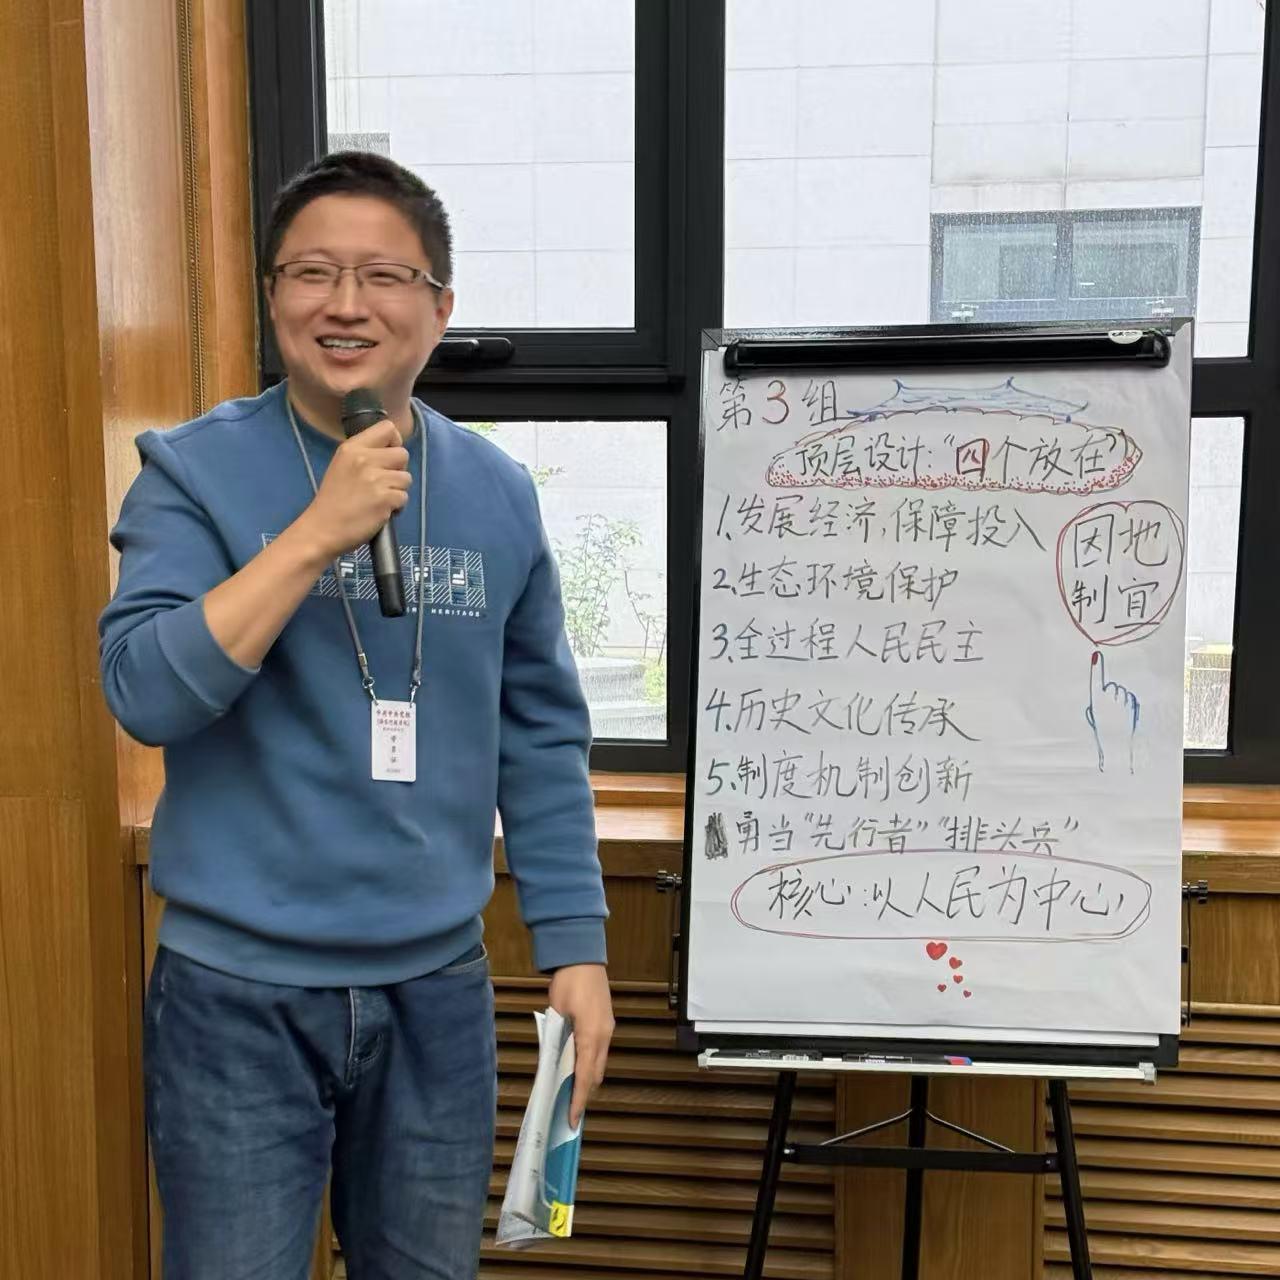 第3组
顶层设计:“四个放在”
1.发展经济,保障投入
2.生态环境保护
3.全过程人民民主
4.历史文化传承
5.制度机制创新
勇当“先行者”“排头兵”
核心:以人民为中心
因地
制宜
HERITAGE
中共中央党校